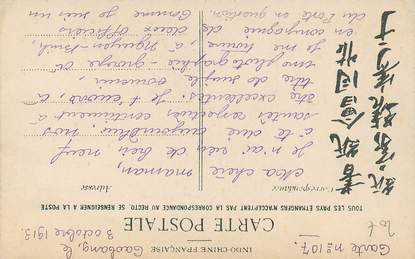 Caobang, le
3 octobre 1913.
Carte n° 107.
INDO-CHINE FRANÇAISE
CARTE POSTALE
TOUS LES PAYS ETRANGERS N'ACCEPTENT PAS LA CORRESPONDANCE AU RECTO. SE RENSEIGNER A LA POSTE
Correspondance
Adresse
Ma chère maman,
Je n'ai rien de bien neuf
à te dire aujourd'hui. Nos
santés respectives continuent à
être excellentes. Je t'envoie, à
titre de simple souvenir,
une photographie-groupe où
je me trouve, à Nguyen-Binh,
en compagnie de deux officiers
du Poste en question. Comme je suis un